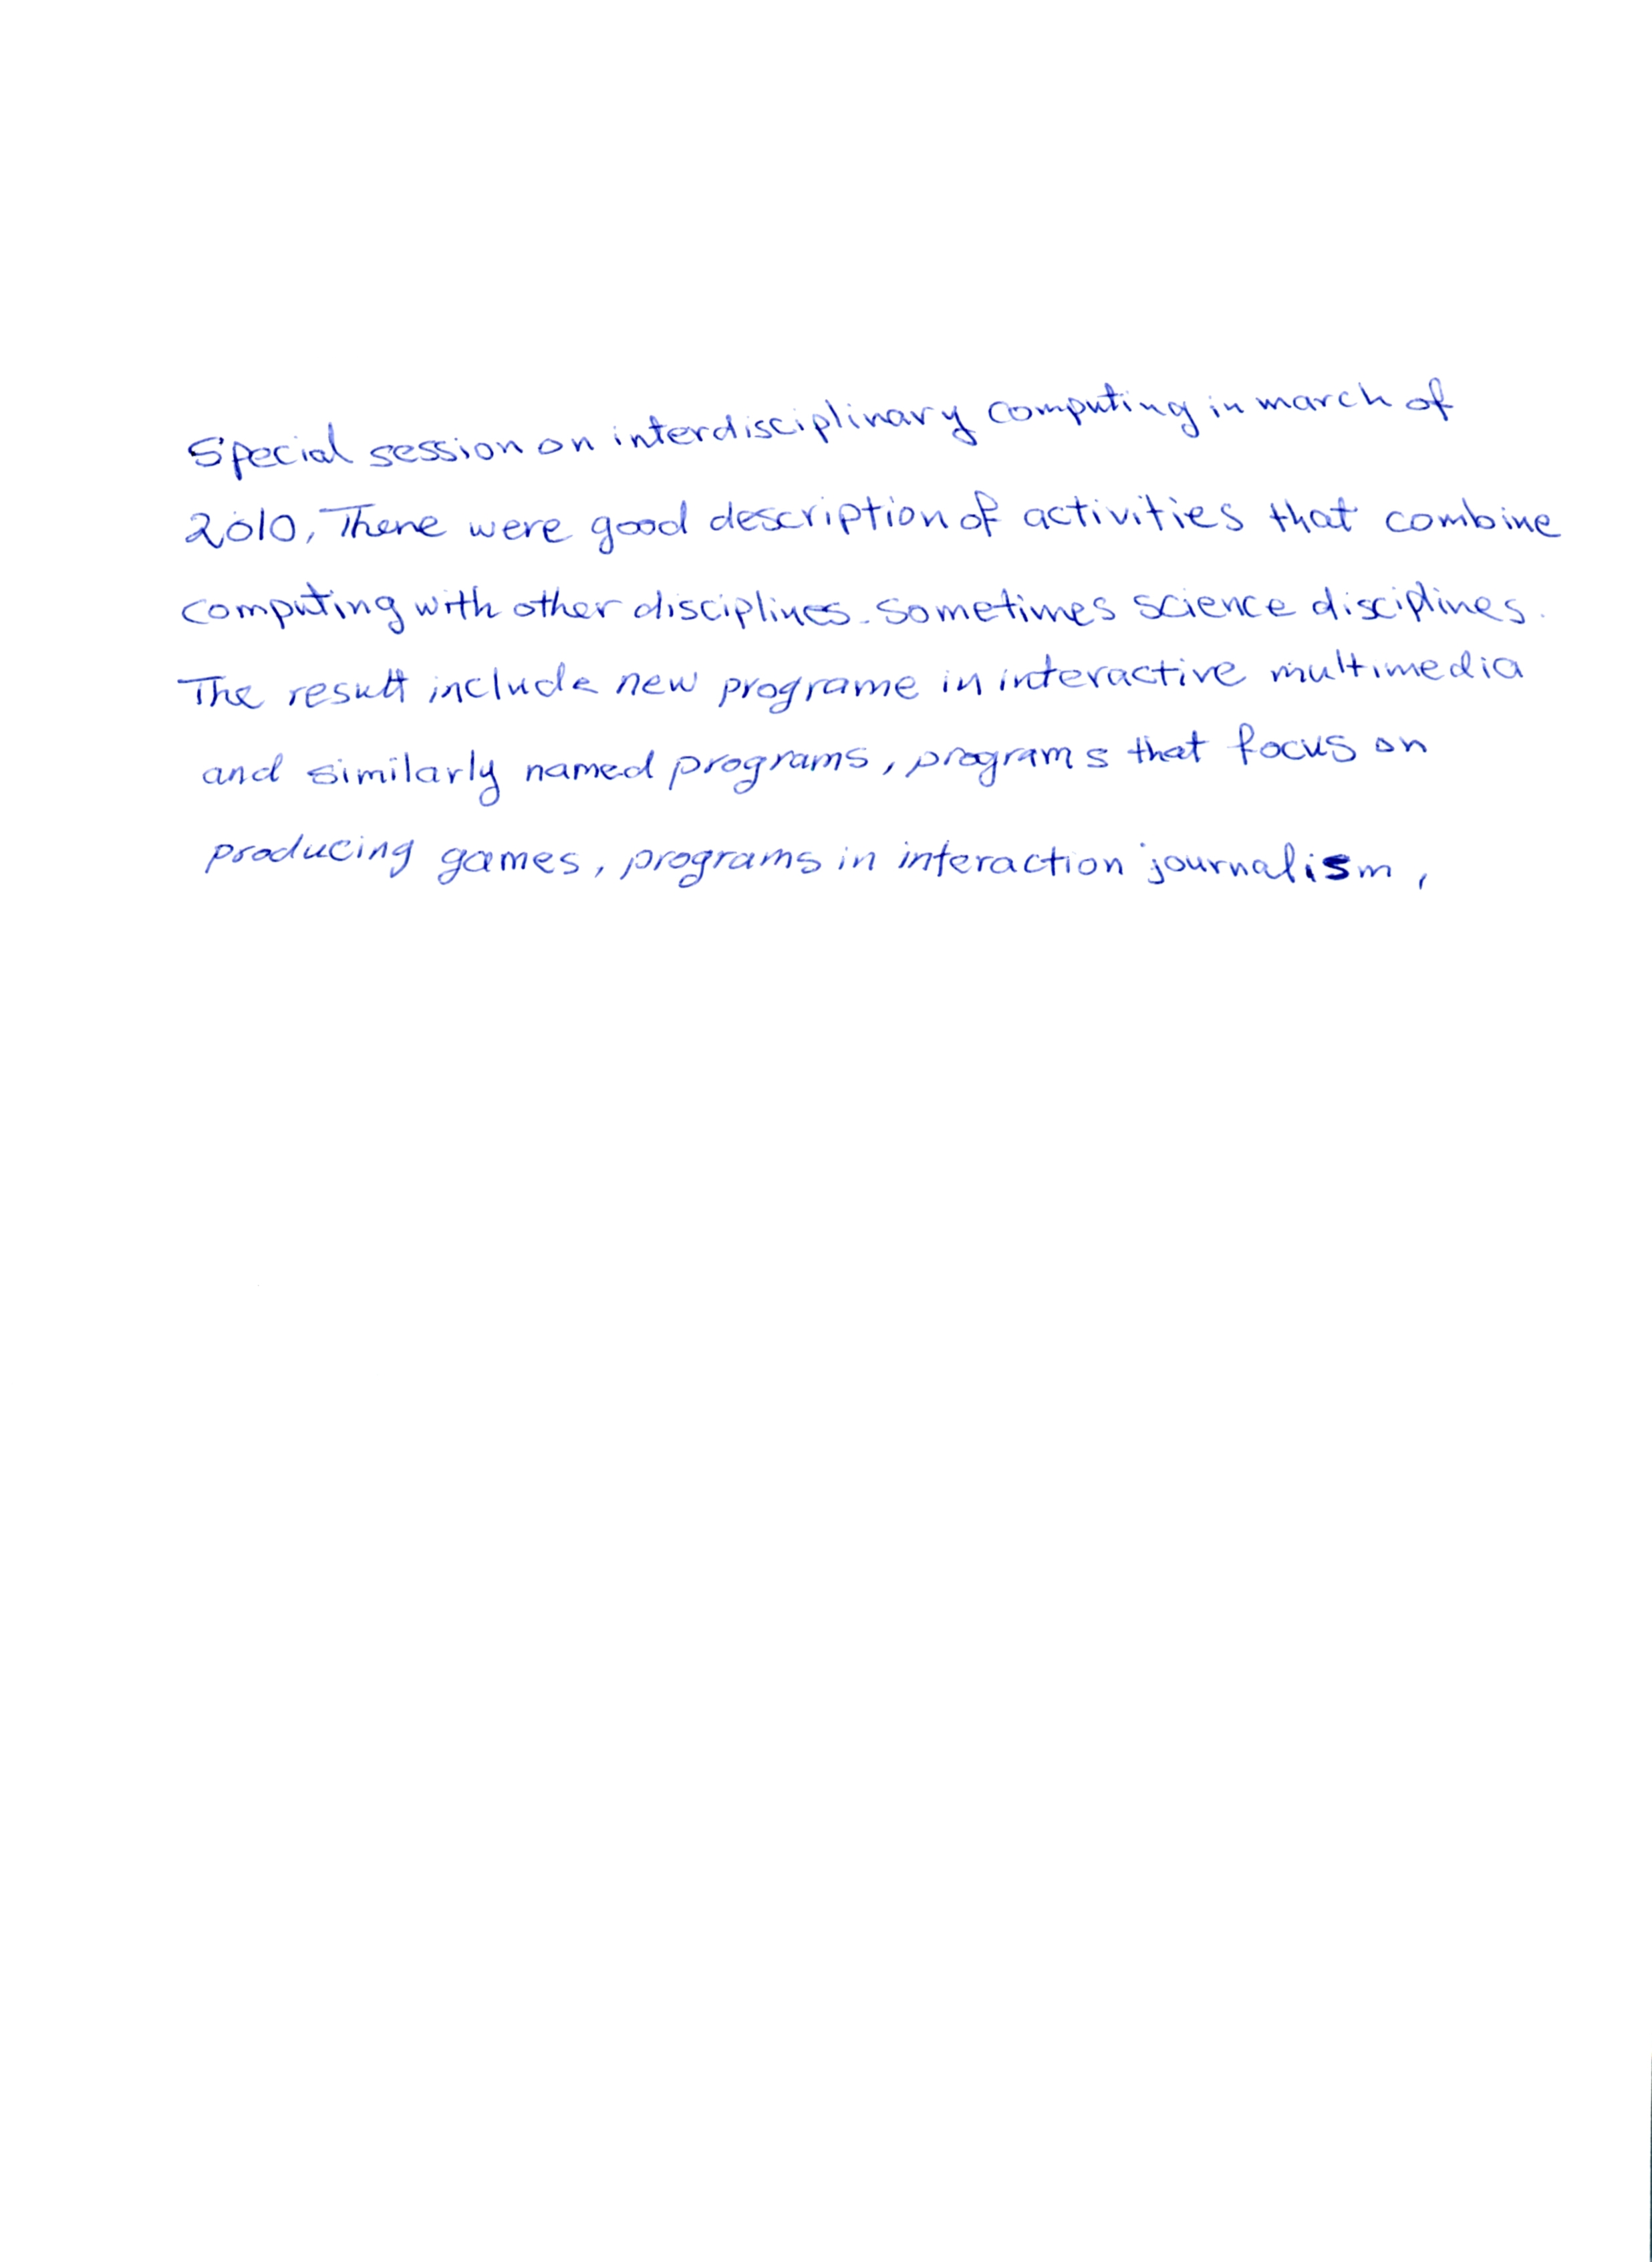 Special session on interdisciplinary computing in march of
2010, There were good description of activities that combine
computing with other disciplines. Sometimes science disciplines.
The result include new programe in interactive multimedia
and similarly named programs, programs that focus on
producing games, programs in interaction journalism,